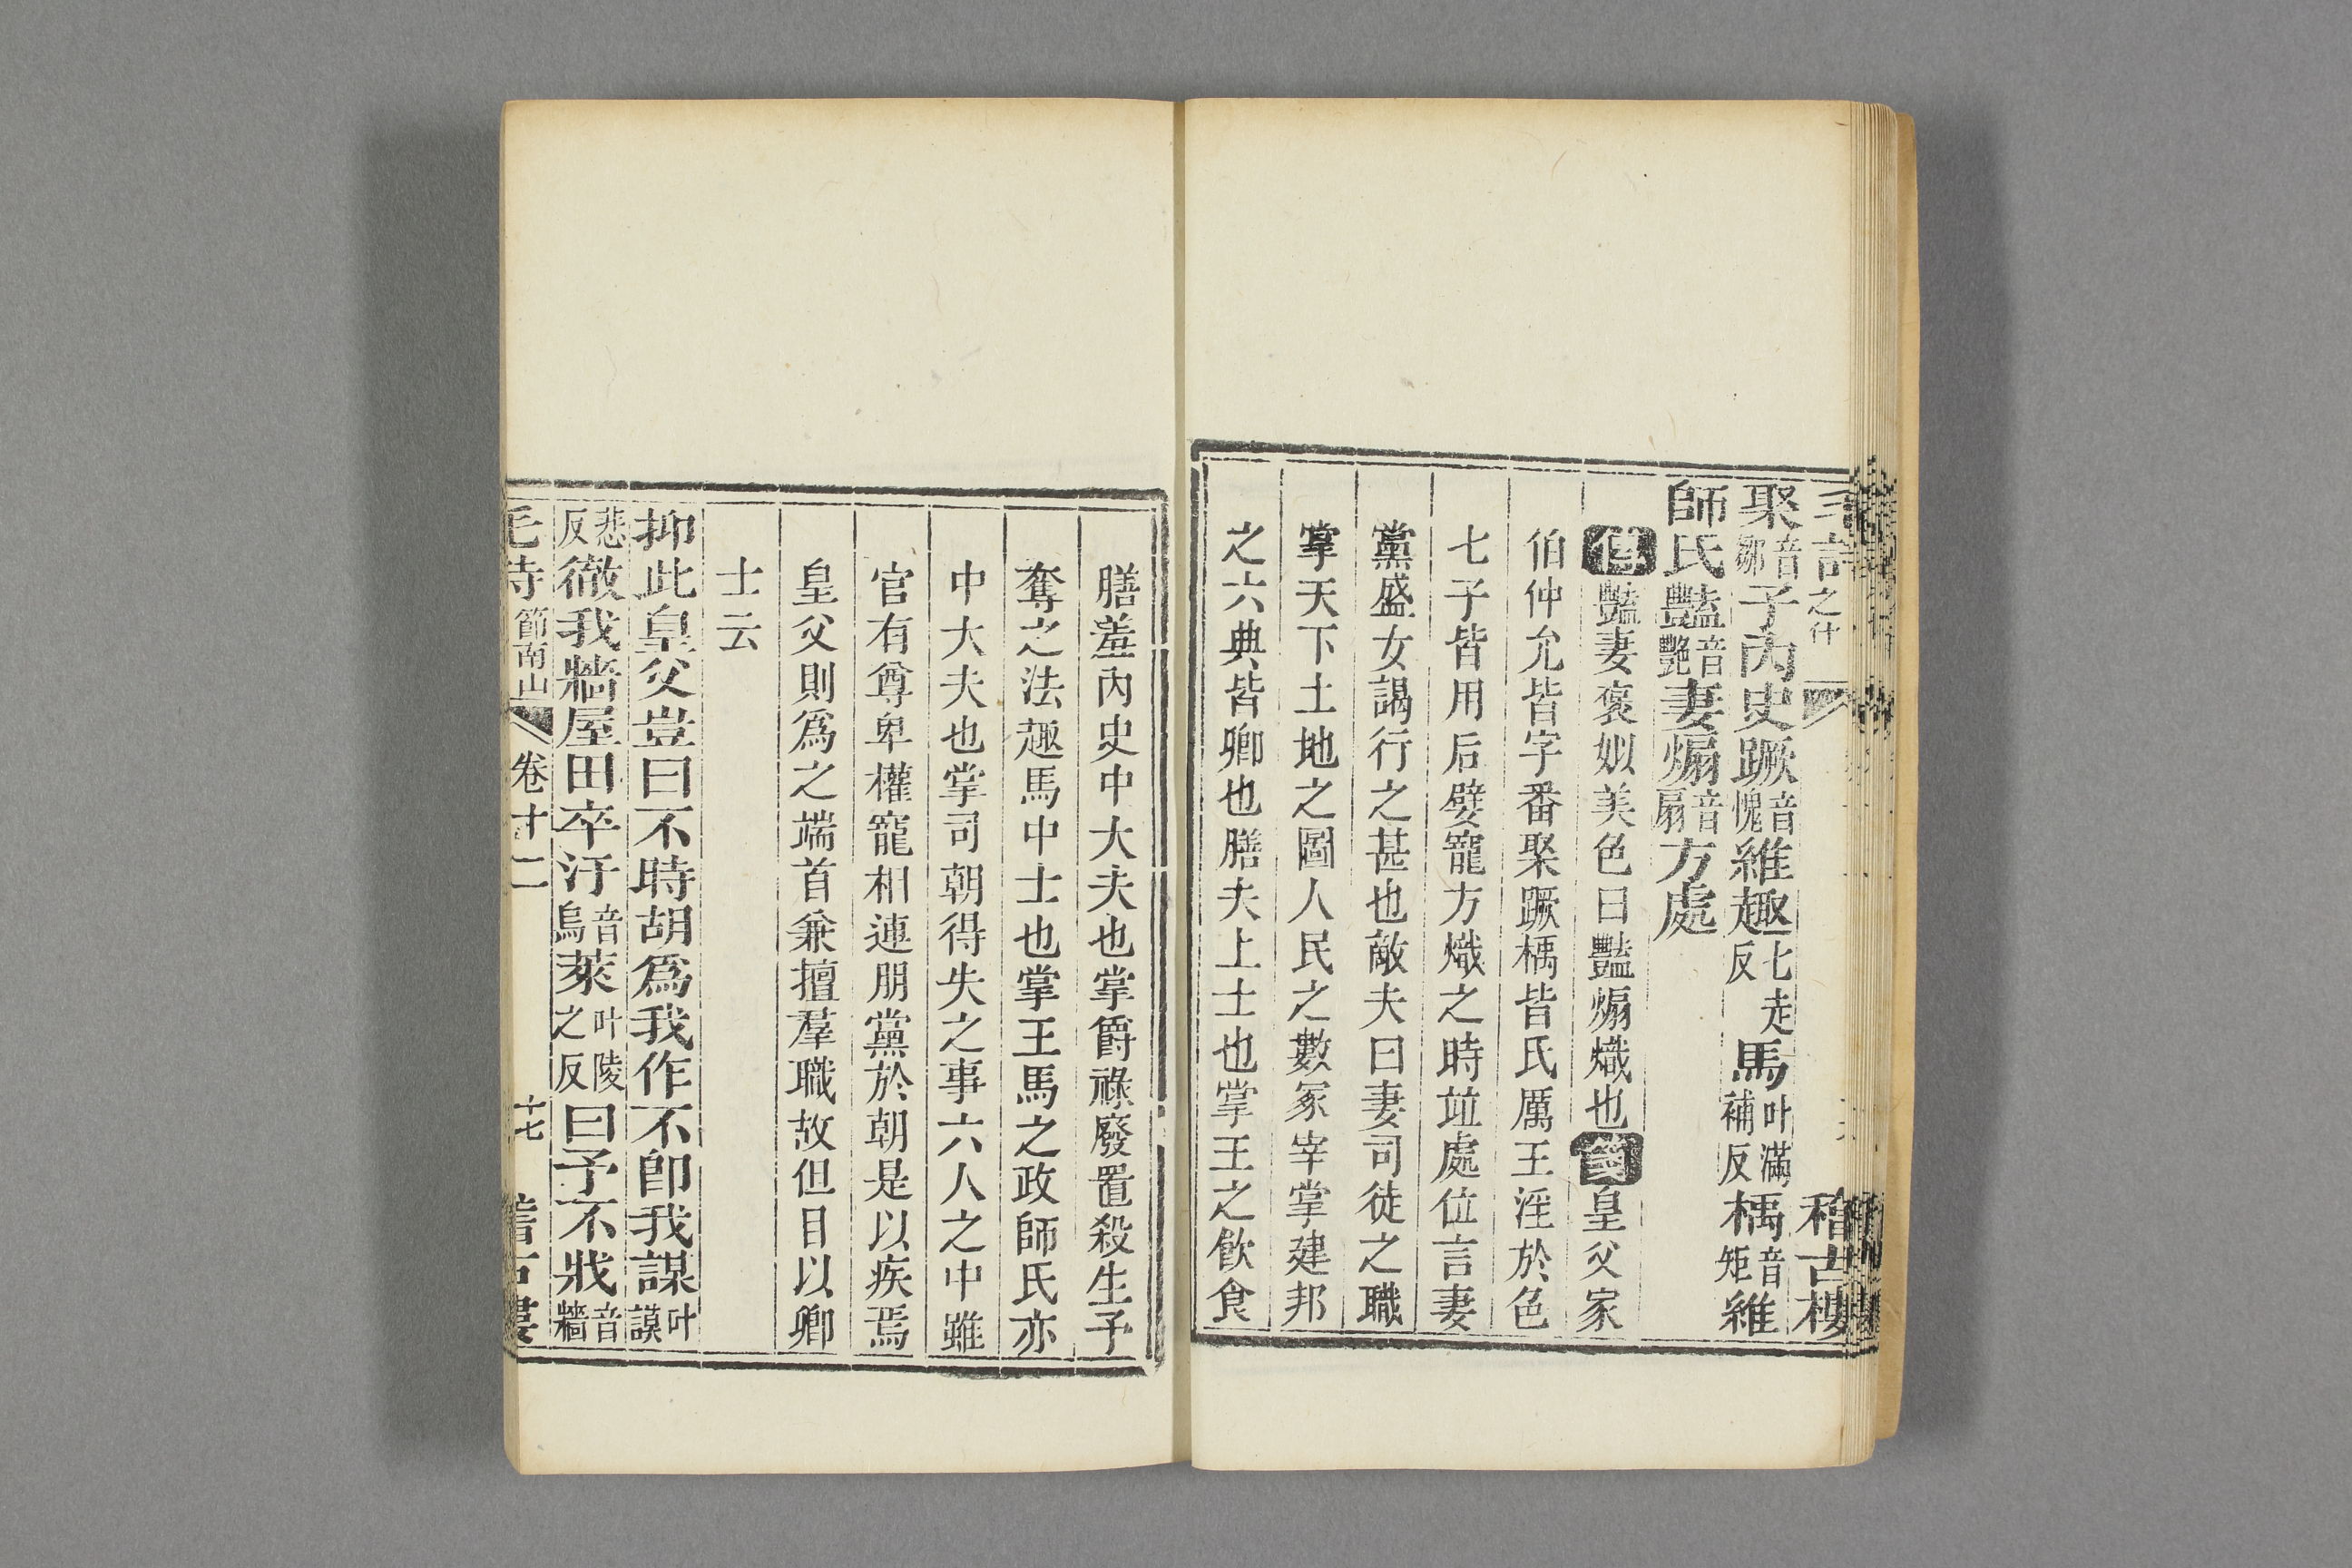 毛詩之什 稽古樓
聚音鄒子內史蹶音愧維趣七走反馬叶滿補反楀音矩維
師氏豔音艷妻煽音扇方處
傳豔妻褒姒美色曰豔煽熾也箋皇父家
伯仲允皆字番聚蹶楀皆氏厲王淫於色
七子皆用后嬖寵方熾之時竝處位言妻
黨盛女謁行之甚也敵夫曰妻司徒之職
掌天下土地之圖人民之數冢宰掌建邦
之六典皆卿也膳夫上士也掌王之飮食
膳羞內史中大夫也掌爵祿廢置殺生予
奪之法趣馬中士也掌王馬之政師氏亦
中大夫也掌司朝得失之事六人之中雖
官有尊卑權寵相連朋黨於朝是以疾焉
皇父則爲之端首兼擅羣職故但目以卿
士云
抑此皇父豈曰不時胡爲我作不卽我謀叶謨
悲反徹我牆屋田卒汙音烏萊叶陵之反曰予不戕音牆
毛詩節南山 卷十二 十七 稽古樓